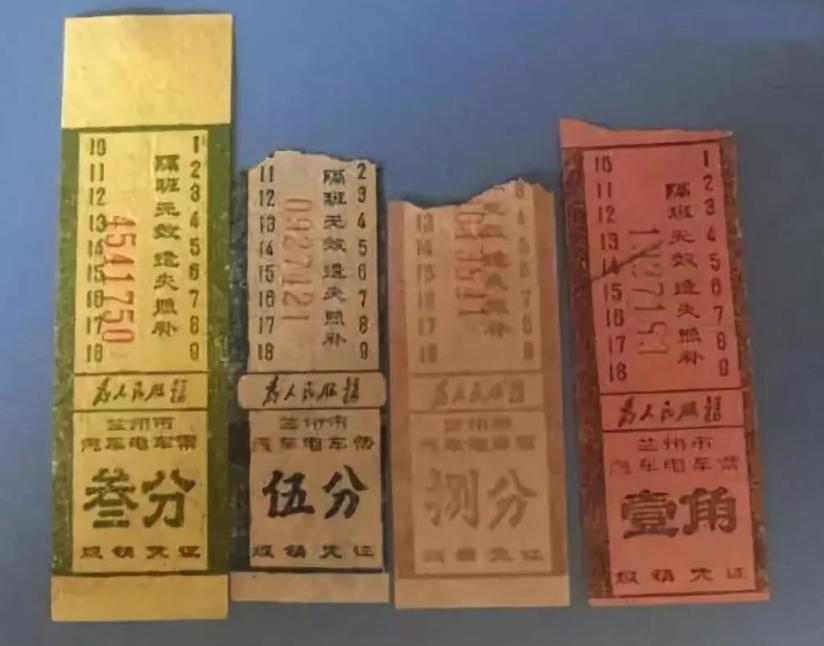 10 1
11 2
12 3
13 4
14 5
15 6
16 7
17 8
18 9
隔班无效 遗失照补
4541750
为人民服务
兰州市
汽车电车票
叁分
报销凭证
11 2
12 3
13 4
14 5
15 6
16 7
17 8
18 9
隔班无效 遗失照补
0927121
为人民服务
兰州市
汽车电车票
伍分
报销凭证
13
14 5
15 6
16 7
17 8
18 9
效 遗失照补
为人民服务
兰州市
汽车电车票
捌分
报销凭证
10 1
11 2
12 3
13 4
14 5
15 6
16 7
17 8
18 9
隔班无效 遗失照补
为人民服务
兰州市
汽车电车票
壹角
报销凭证